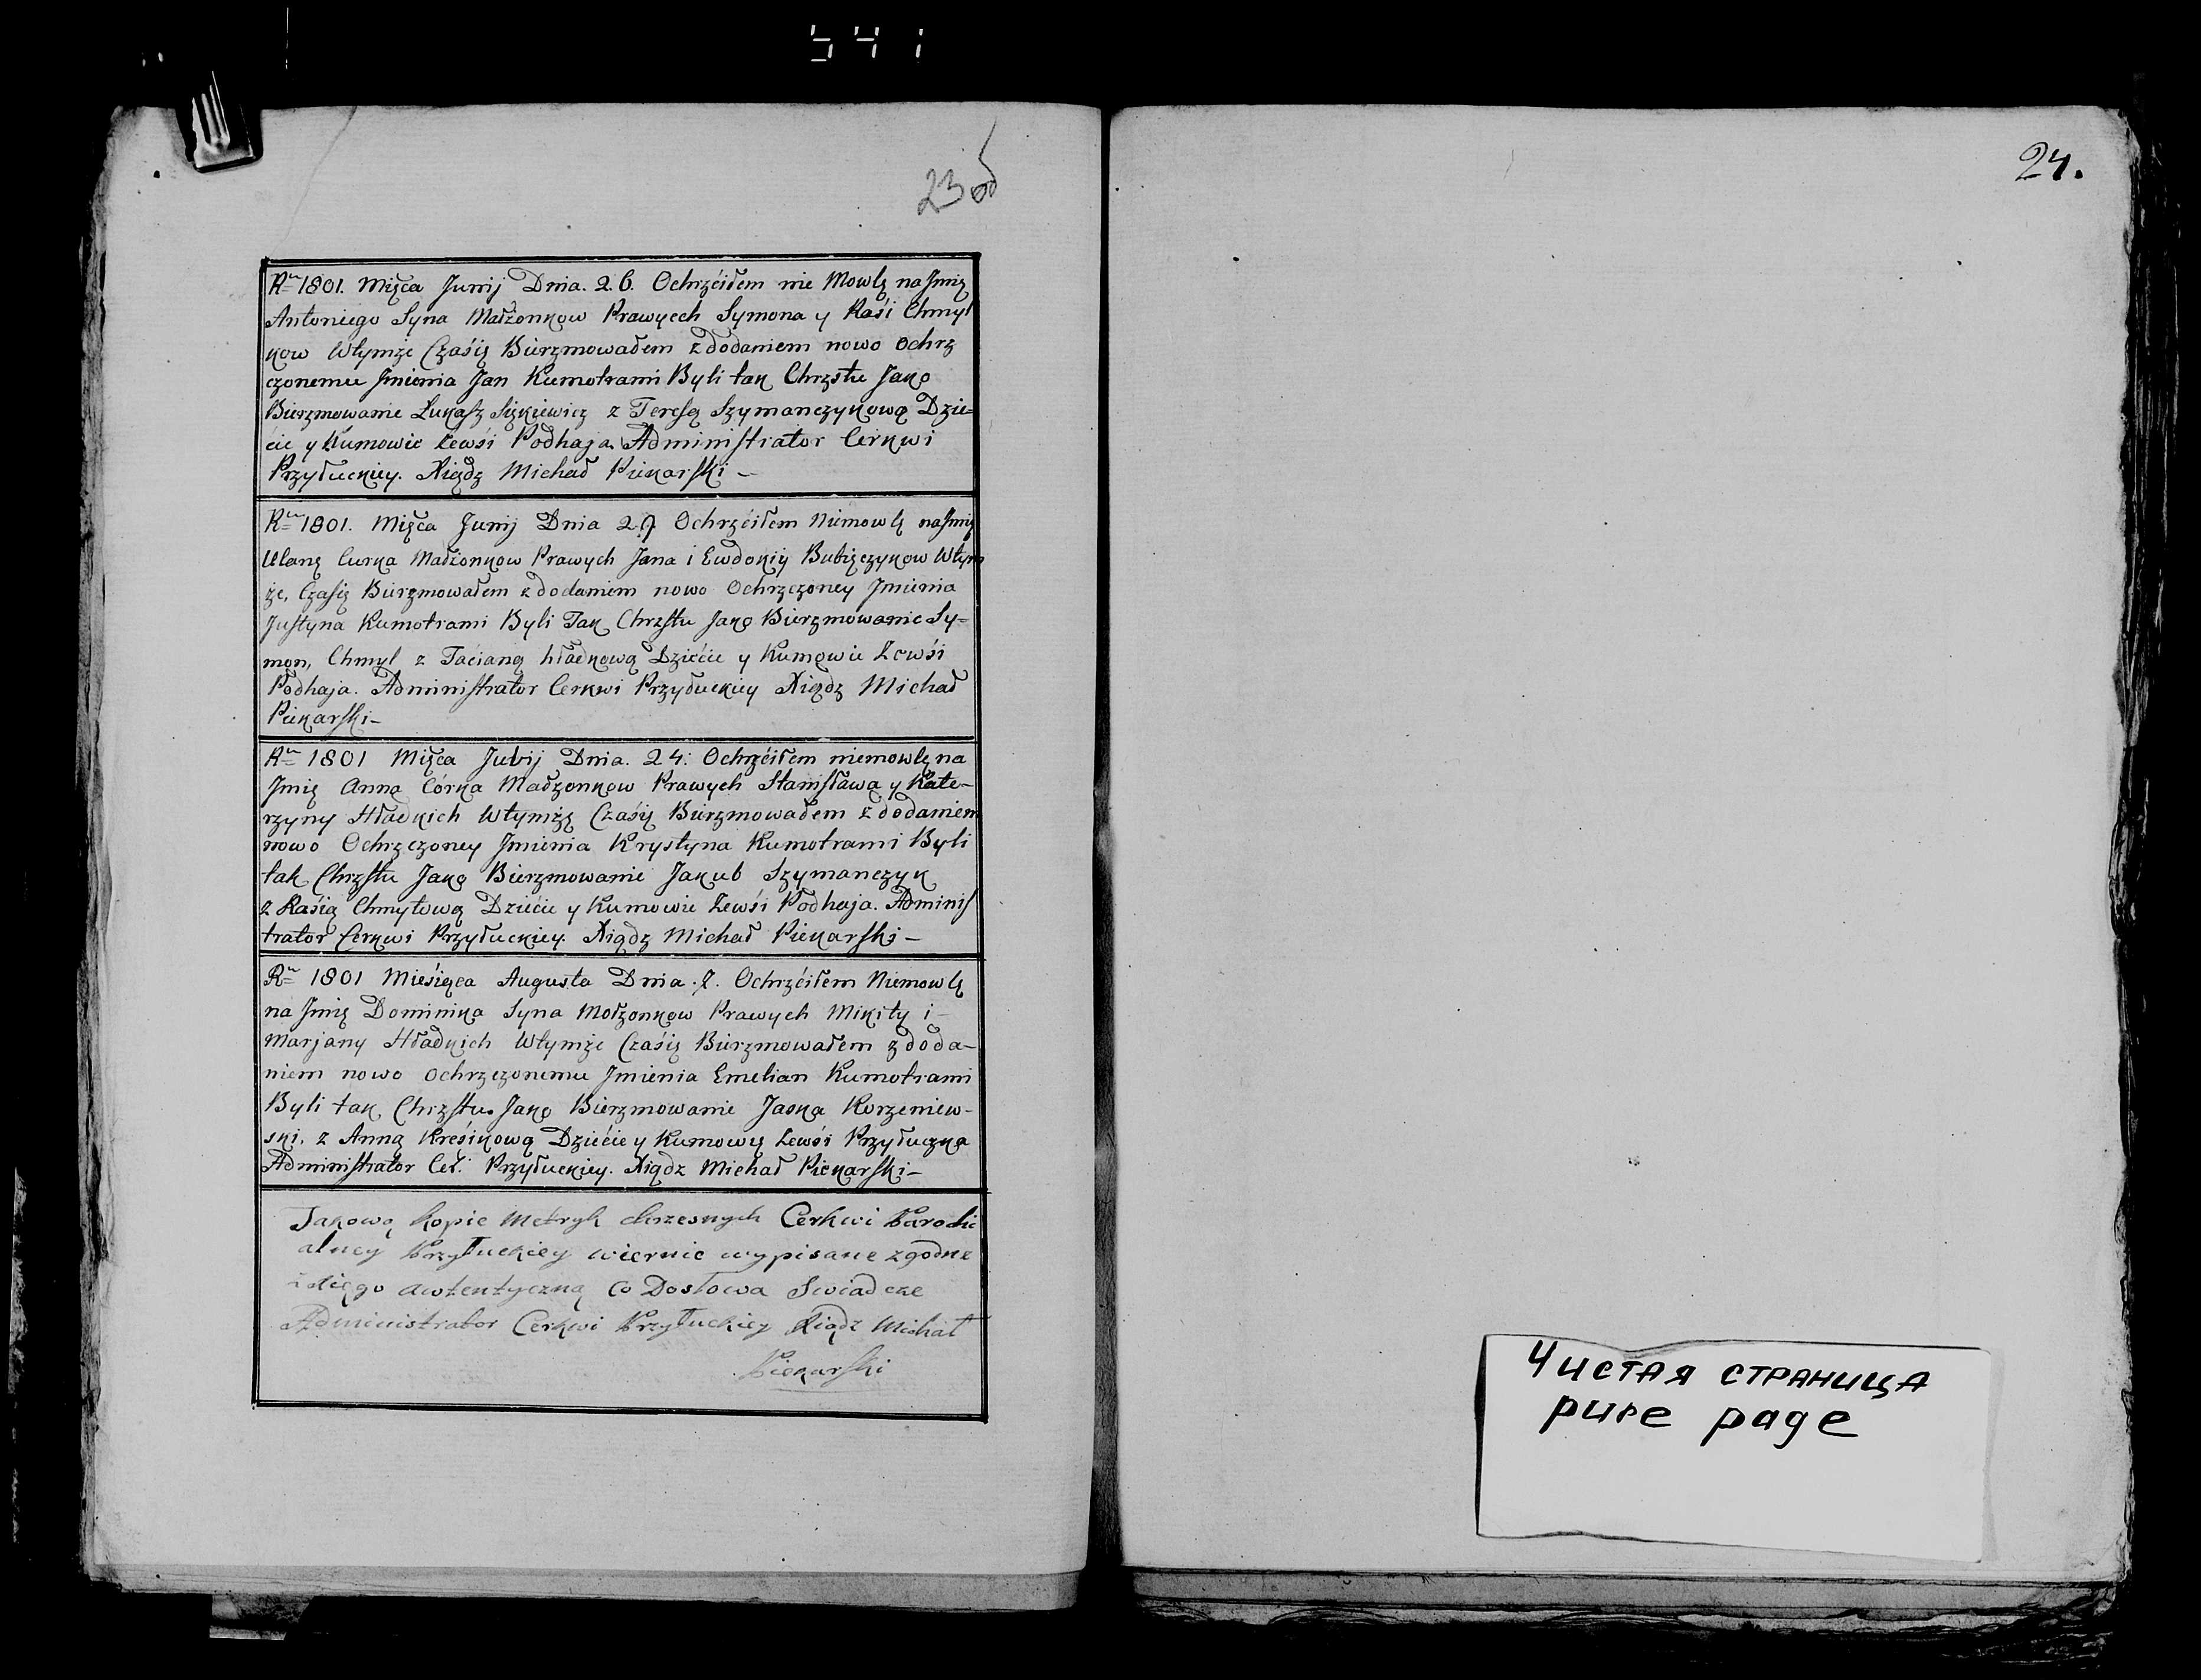 541
23 об
Rᵘ 1801. Mięca Junij Dnia. 26. Ochrzćiłem nie Mowlę na Jmię
Antoniego Syna Małżonkow Prawych Symona y Kaśi Chmyl
kow Wtymże Czaśię Bierzmowałem z dodaniem nowo Ochrz
czonemu Jmienia Jan Kumotrami Byli tak Chrzstu Jako
Bierzmowanie Łukasz z Teresą Szymanczykową Dzie=
cie y Kumowie Zewśi Podhaja. Administrator Cerkwi
Przyłuckiey. Xiądz Michał Piekarski –
Rᵘ 1801. Mięca Junij Dnia Ochrzćiłem Niemowlę na Jmię
Ulanę Curka Małżonkow Prawych Jana i Ewdokiy Wtym
że, Czasię Bierzmowałem z dodaniem nowo Ochrzczoney Jmienia
Justyna Kumotrami Byli Tak Chrzstu Jako Bierzmowanie Sy=
mon, Chmyl z Taćianą hładkową Dziećie y Kumowie Zewśi
Podhaja. Administrator Cerkwi Przyłuckiey Xiądz Michał
Piekarski –
Rᵘ 1801 Mięca Julij Dnia. 24: Ochrzćiłem niemowlę na
Jmię Anna Córka Małżonkow Prawych Stanisława y Kate–
rzyny Hładkich Wtymżę Czaśię Bierzmowałem z dodaniem
nowo Ochrzczoney Jmienia Krystyna Kumotrami Byli
tak Chrzstu Jako Bierzmowanie Jakub Szymanczyk
z Kaśią Chmylową Dziećie y Kumowie Zewśi Podhaja. Adminis
trator Cerkwi Przyłuckiey. Xiądz Michał Piekarski –
Rᵘ 1801 Mieśiąca Augusta Dnia Ochrzćiłem Niemowlę
na Jmię Dominika Syna Małżonkow Prawych Mikity i –
Marjany Hładkich Wtymże Czaśię Bierzmowałem z doda–
niem nowo ochrzczonemu Jmienia Emelian Kumotrami
Byli tak Chrzstu Jako Bierzmowanie Jaska Korzeniew–
ski. z Anną Kreśikową Dziećie y Kumowy Zewśi Przyłuczka
Administrator Cer: Przyłuckiey. Xiądz Michał Piekarski –
Jakową kopie Metryk chrzesnych Cerkwi Parochi
alney Przyłuckiey wiernie wypisane zgodne
awtentyczną Co Dosłowa Swiadcze
Administrator Cerkwi Przyłuckiey Xiądz Michał
Piekarski
24.
Чистая страница
pure page